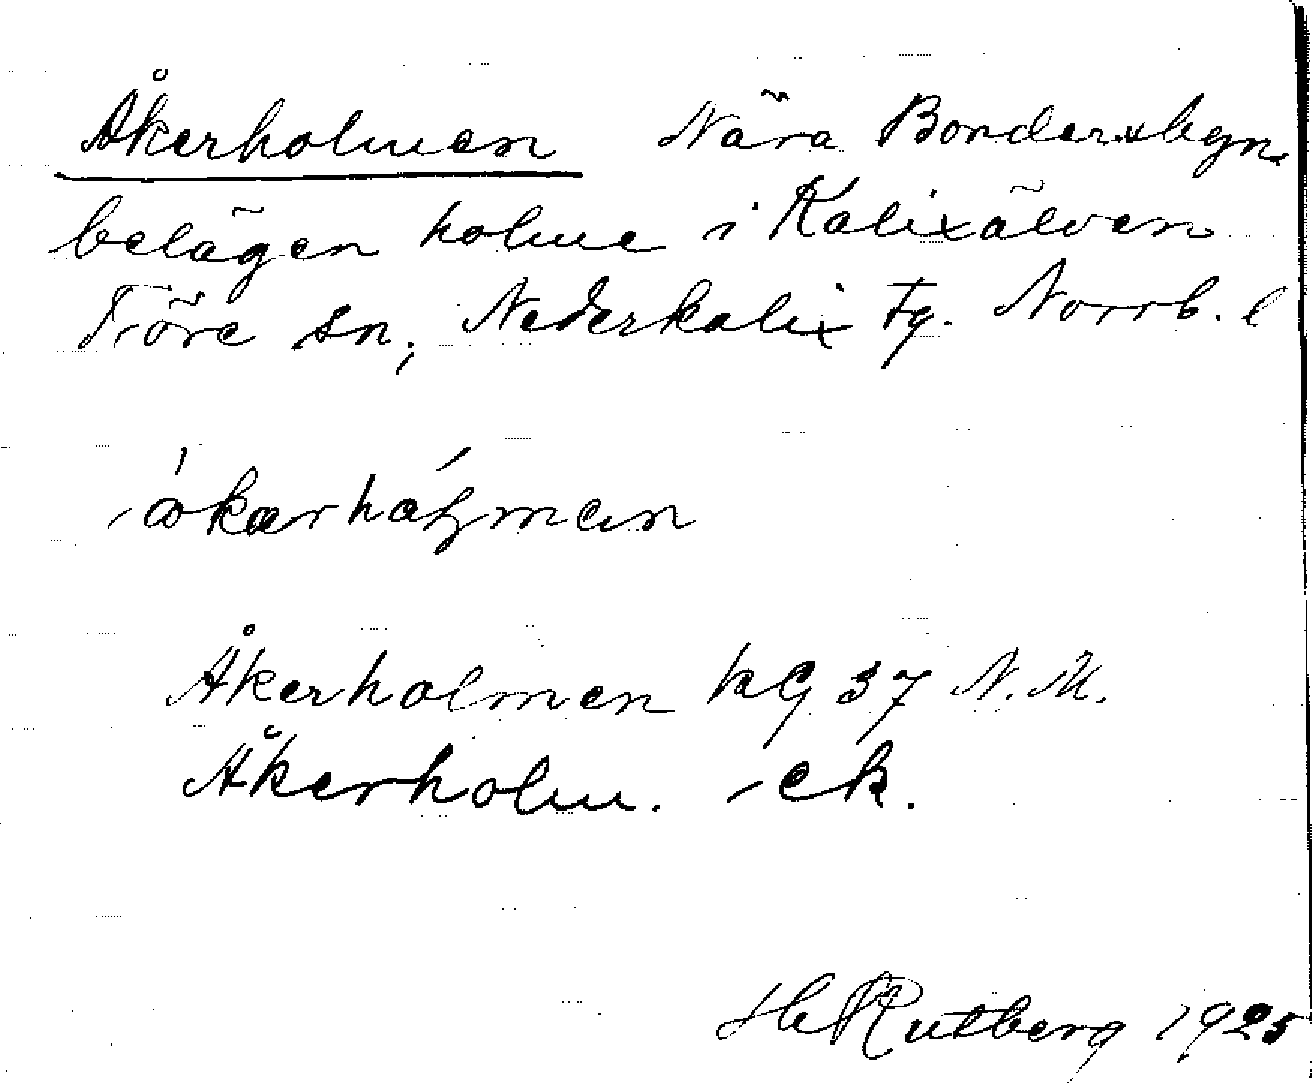 Åkerholmen Nära Bondersbyn
belägen holme i Kalixälven
Töre sn, Nederkalix tg. Norrb. l
Åkerholmen kG 37 N.M.
Åkerholm. -ek.
H Rutberg 1925